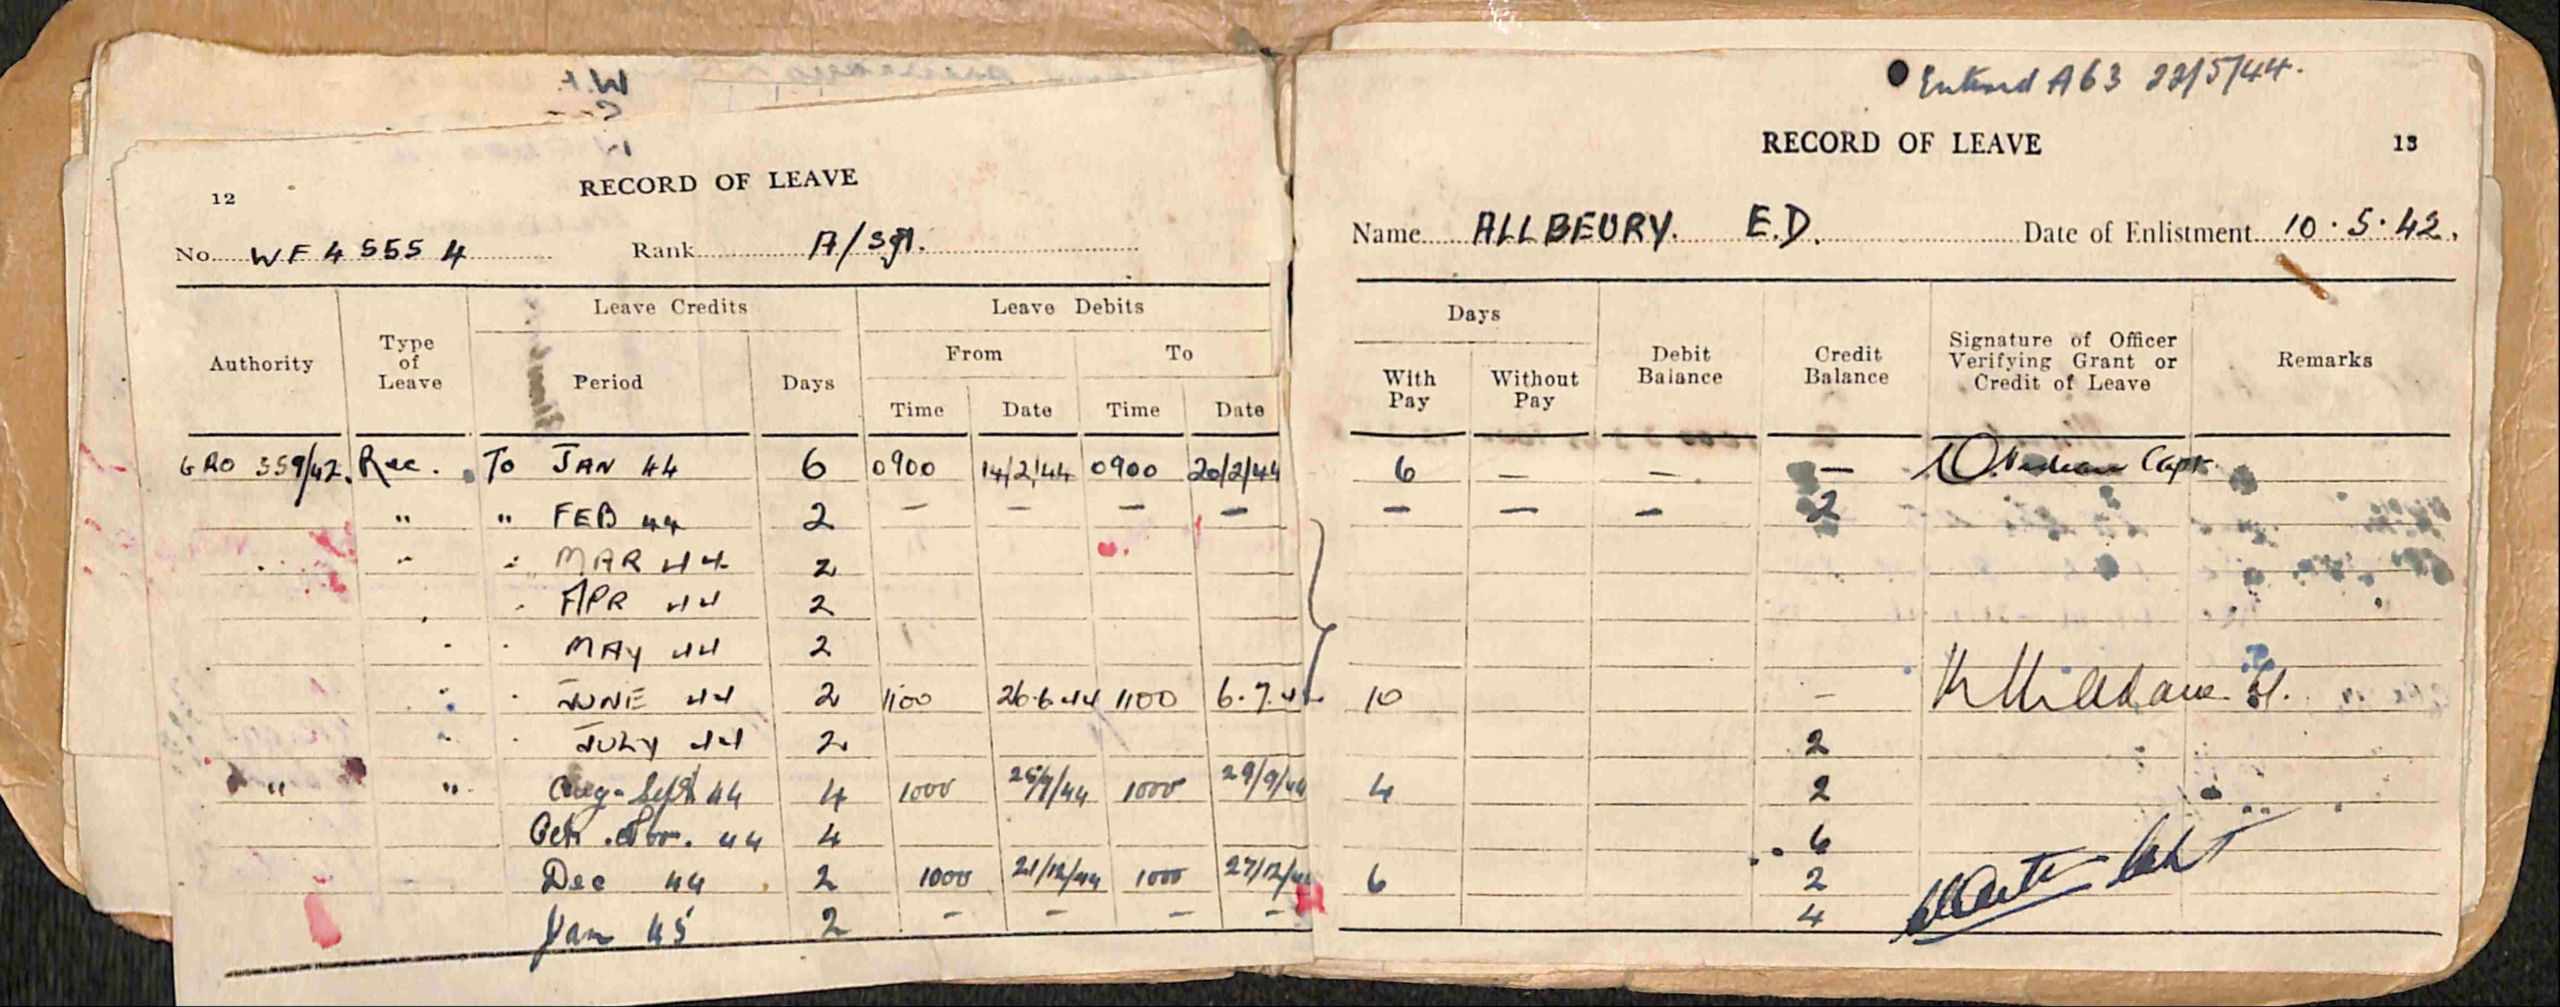 Entered A63 22/5/44.
12
RECORD OF LEAVE
No. WF 45554 Rank A/Sgt.
Authority Type of Leave Leave Credits Leave Debits
Period Days From To
Time Date Time Date
GRO 359/42. Rec. To JAN 44 6 0900 14/2/44 0900 20/2/44
" " FEB 44 2 — — — —
" " MAR 44 2
" APR 44 2
" " MAY 44 2
" " JUNE 44 2 1100 26.6.44 1100 6.7.44
" " JULY 44 2
" " Aug - Sept 44 4 1000 25/9/44 1000 29/9/44
Oct . Nov. 44 4
Dec 44 2 1000 21/12/44 1000 27/12/44
Jan 45 2 — — — —
RECORD OF LEAVE
13
Name ALLBEURY. E.D. Date of Enlistment 10.5.42.
Days Debit Balance Credit Balance Signature of Officer Verifying Grant or Credit of Leave Remarks
With Pay Without Pay
6 — — — Capt.
— — — 2
10 —
2
4 2
6
6 2
4